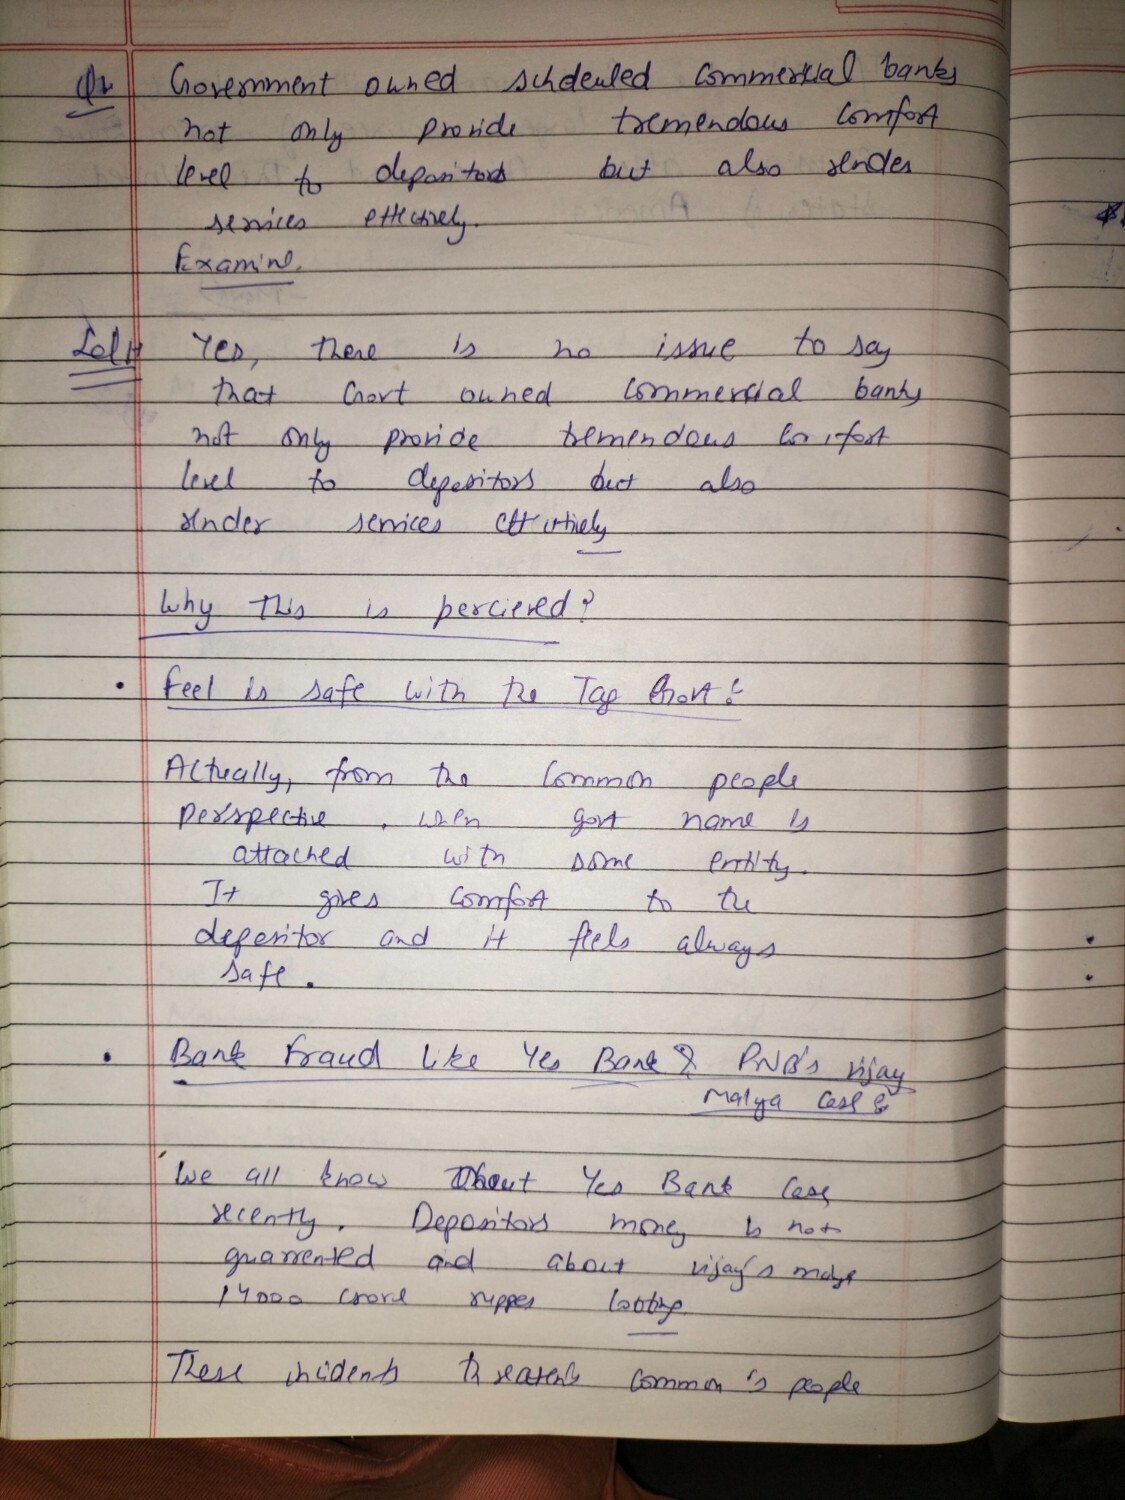 Q. Government owned schdeuled commercial banks
not only provide tremendous comfort
level to depositors but also render
services effectively.
Examine.
Soln Yes, there is no issue to say
that Govt owned commercial banks
not only provide tremendous comfort
level to depositors but also
render services effectively
Why this is percieved?
• Feel is safe with the Tag Govt :-
Actually, from the common people
perspective, when govt name is
attached with some entity.
It gives comfort to the
depositor and it feels always
safe.
• Bank Fraud Like Yes Bank & PNB's vijay
Malya case :-
We all know about Yes Bank case
recently. Depositors money is not
guarrented and about vijay's
14000 crore ruppes
These incidents threatens common's people